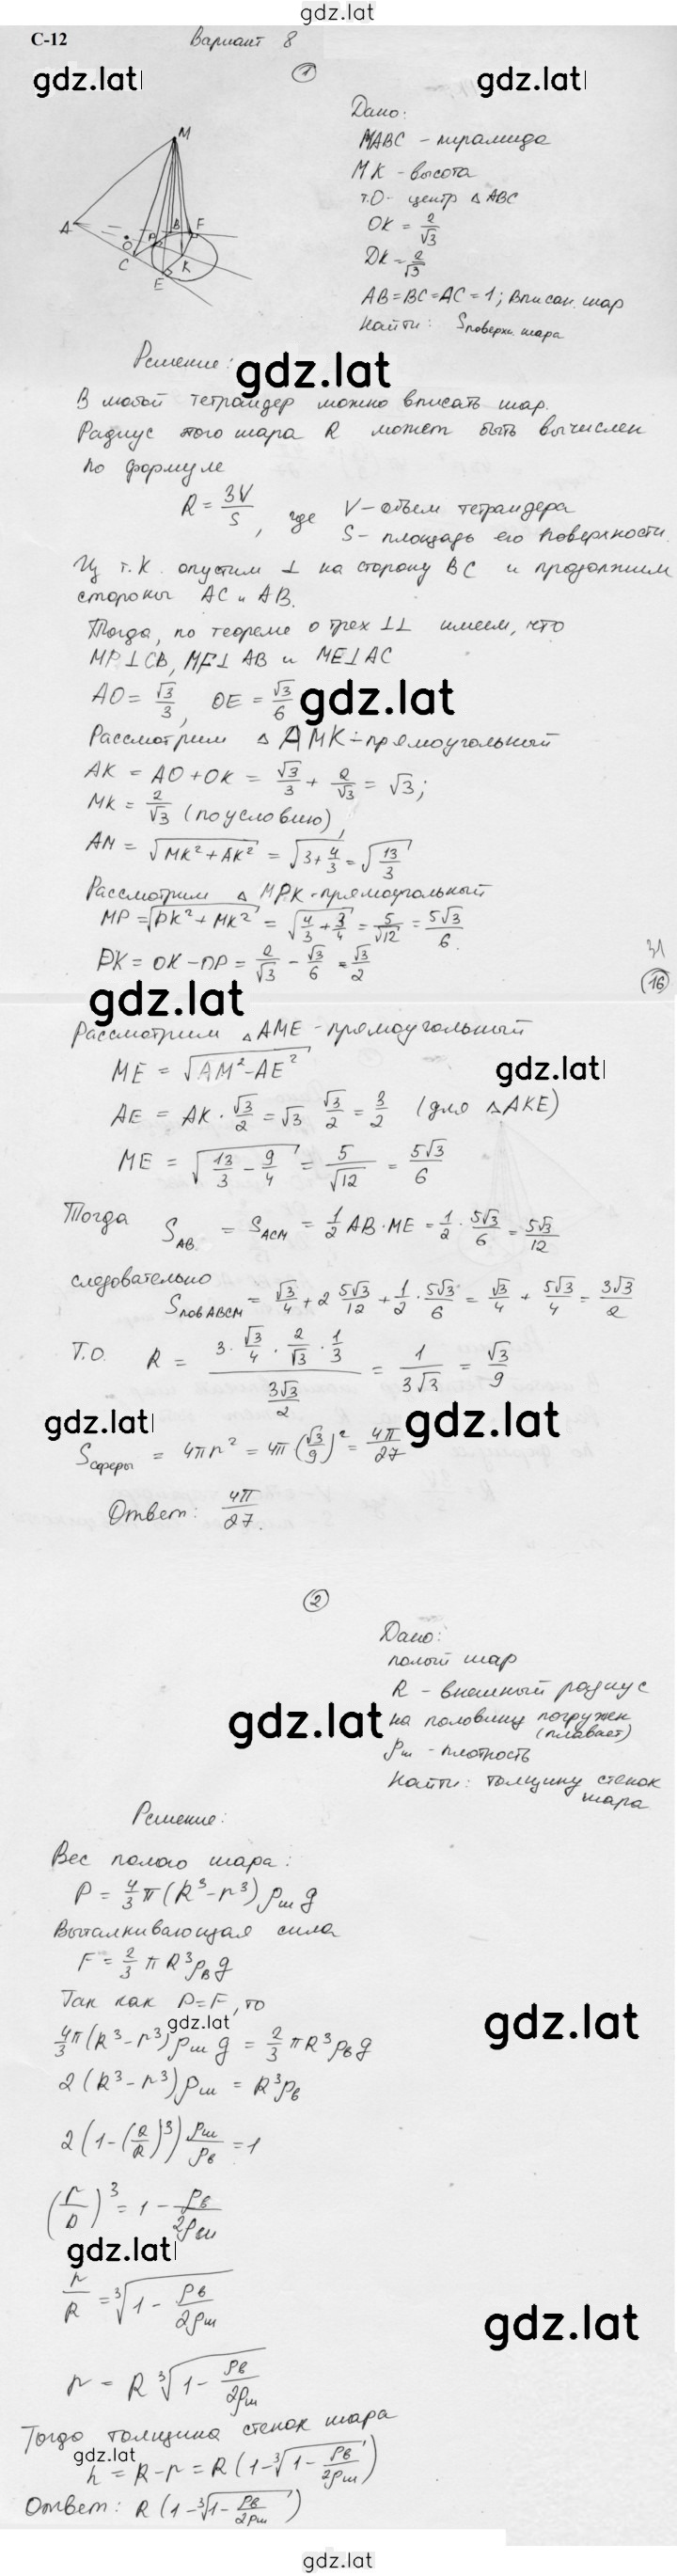 gdz.lat
С-12 Вариант 8
gdz.lat gdz.lat
1
Дано:
MABC - пирамида
MK - высота
т.О - центр △ABC
OK = 2/√3
DK = 2/√3
AB=BC=AC=1; Вписан. шар
Найти: Sповерхн. шара
M
A B F
O P
C K
E
Решение:
gdz.lat
В любой тетраидер можно вписать шар.
Радиус этого шара R может быть вычислен
по формуле
R = 3V/S, где V - объем тетраидера
S - площадь его поверхности.
Из т.К. опустим ⊥ на сторону BC и продолжим
стороны AC и AB.
Тогда, по теореме о трех ⊥⊥ имеем, что
MP⊥CB, MF⊥AB и ME⊥AC
AO = √3/3, OE = √3/6
gdz.lat
Рассмотрим △AMK - прямоугольный
AK = AO + OK = √3/3 + 2/√3 = √3;
MK = 2/√3 (по условию),
AM = √(MK² + AK²) = √(3+4/3) = √(13/3)
Рассмотрим △ MPK - прямоугольный
MP = √(PK² + MK²) = √(4/3 + 3/4) = 5/√12 = 5√3/6.
PK = OK - OP = 2/√3 - √3/6 = √3/2
31
16
gdz.lat
Рассмотрим △AME - прямоугольный
ME = √(AM² - AE²)
gdz.lat
AE = AK · √3/2 = √3 √3/2 = 3/2 (для △AKE)
ME = √(13/3 - 9/4) = 5/√12 = 5√3/6
Тогда SAB. = SACM = 1/2 AB · ME = 1/2 · 5√3/6 = 5√3/12
следовательно
Sпов ABCM = √3/4 + 2 5√3/12 + 1/2 · 5√3/6 = √3/4 + 5√3/4 = 3√3/2
Т.О. R = (3 · √3/4 · 2/√3 · 1/3)/(3√3/2) = 1/(3√3) = √3/9
gdz.lat gdz.lat
Sсферы = 4πr² = 4π(√3/9)² = 4π/27
Ответ: 4π/27.
2
Дано:
полый шар
R - внешный радиус
gdz.lat
на половину погружен
(плавает)
ρш - плотность
Найти: толщину стенок
шара
Решение:
Вес полого шара:
P = 4/3 π (R³ - r³) ρш g
Выталкивающая сила
F = 2/3 π R³ρв g
Так как P=F, то
gdz.lat
gdz.lat
4/3 π (R³ - r³) ρш g = 2/3 πR³ρв g
2 (R³ - r³) ρш = R³ρв
2 (1 - (R/R)³) ρш/ρв = 1
(r/D)³ = 1 - ρв/2ρш
gdz.lat
r/R = ³√(1 - ρв/2ρш)
gdz.lat
r = R ³√(1 - ρв/2ρш)
Тогда толщина стенок шара
gdz.lat
h = R - r = R (1 - ³√(1 - ρв/2ρш))
Ответ: R (1 - ³√(1 - ρв/2ρш))
gdz.lat